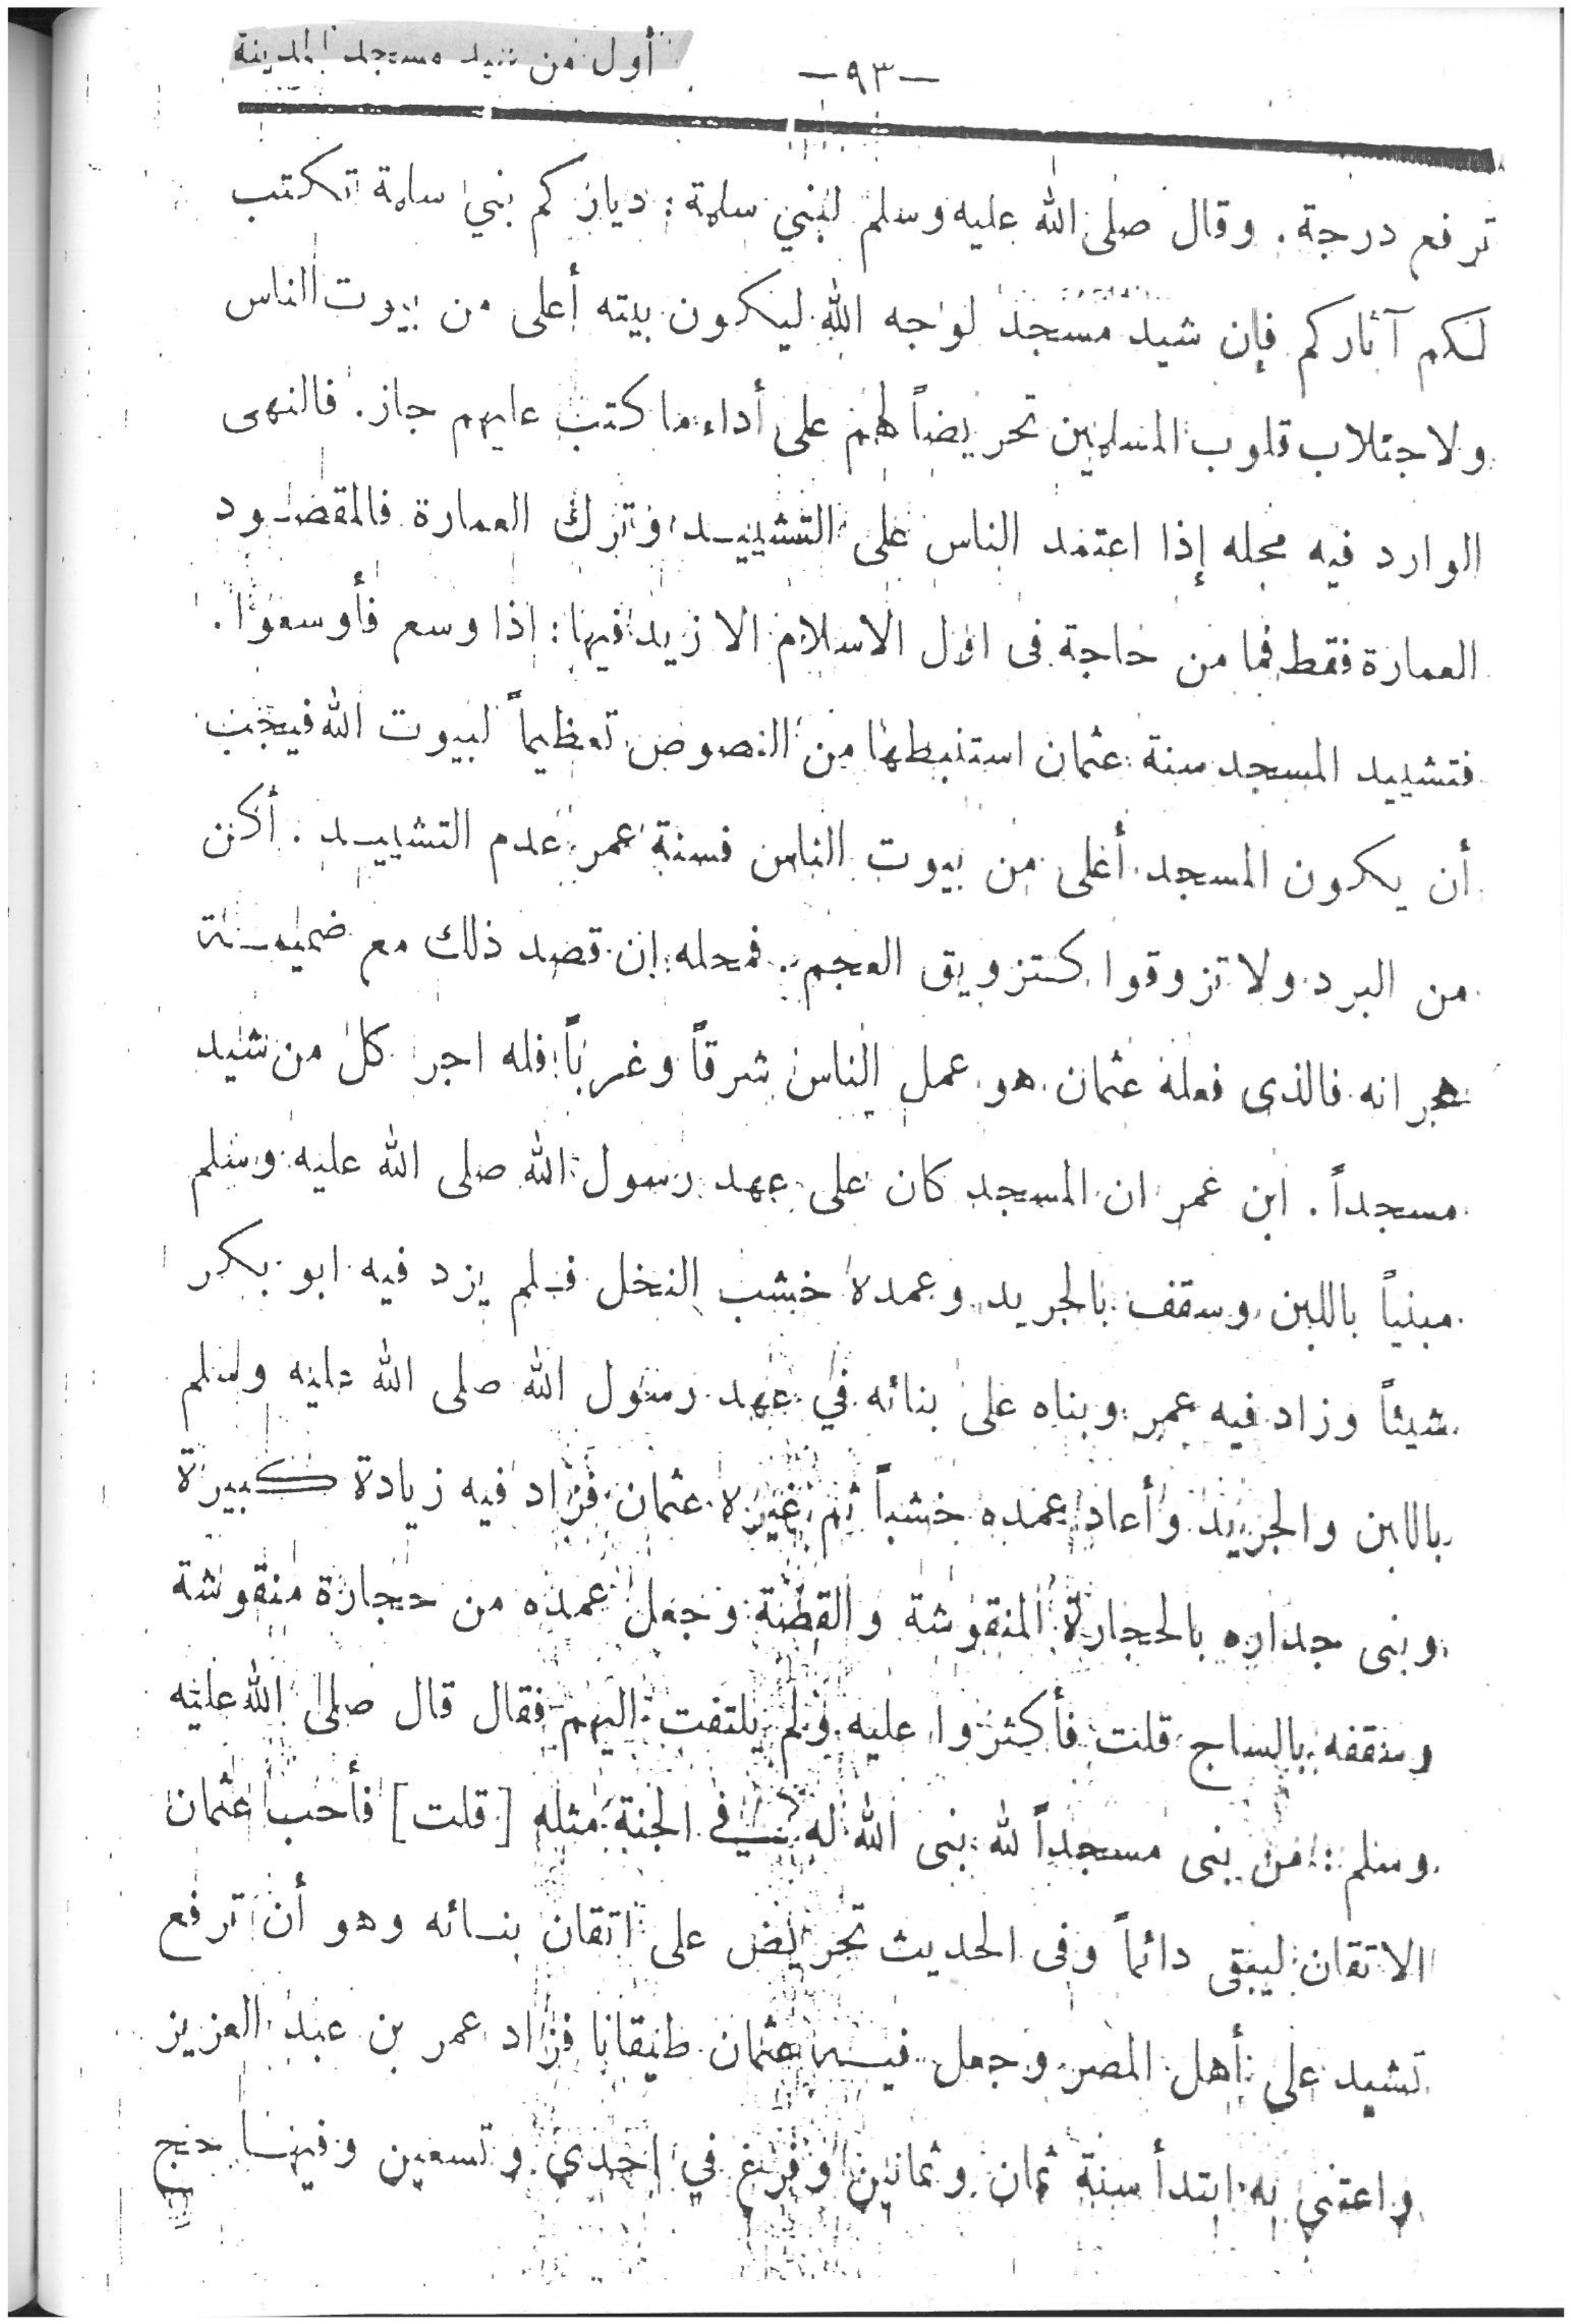 أول من شيد مسجد المدينة
—٩٣—
ترفع درجة. وقال صلى الله عليه وسلم لبني سلمة: دياركم بني سلمة تكتب
لكم آثاركم فإن شيد مسجد لواجه الله ليكون بيته أعلى من بيوت الناس
ولاجتلاب قلوب المسلمين تحريضاً لهم على أداء ما كتب عليهم جاز. فالنهى
الوارد فيه محله إذا اعتمد الناس على التشييد وترك العمارة فالمقصود
العمارة فقط فما من حاجة فى اول الاسلام الا زيد فيها: اذا وسع فأوسعوا.
فتشييد المسجد سنة عثمان استنبطها من النصوص تعظيماً لبيوت الله فيجب
أن يكون المسجد أعلى من بيوت الناس فسنة عمر عدم التشييد. أكنن
من البرد ولا تزوقوا كتزويق العجم. فمحله إن قصد ذلك مع ضميمة
هجرانه فالذى فعله عثمان هو عمل الناس شرقاً وغرباً فله اجر كل من شيد
مسجداً. ابن عمر ان المسجد كان على عهد رسول الله صلى الله عليه وسلم
مبنياً باللبن وسقف بالجريد وعمده خشب النخل فلم يزد فيه ابو بكر
شيئاً وزاد فيه عمر وبناه على بنائه في عهد رسول الله صلى الله عليه وسلم
باللبن والجريد وأعاد عمده خشباً ثم غيره عثمان فزاد فيه زيادة كبيرة
وبنى جداره بالحجارة المنقوشة والقطنة وجعل عمده من حجارة منقوشة
وسقفه بالساج قلت فأكثروا عليه ولم يلتفت اليهم فقال قال صلى الله عليه
وسلم: من بنى مسجداً لله بنى الله له في الجنة مثله [قلت] فأحب عثمان
الاتقان ليبقى دائماً وفى الحديث تحريض على اتقان بنائه وهو أن ترفع
تشيد على أهل المصر وجعل فيه عثمان طيقانا فزاد عمر بن عبد العزيز
واعتنى به ابتدأ سنة ثمان وثمانين وفرغ في إحدى وتسعين وفيها حج